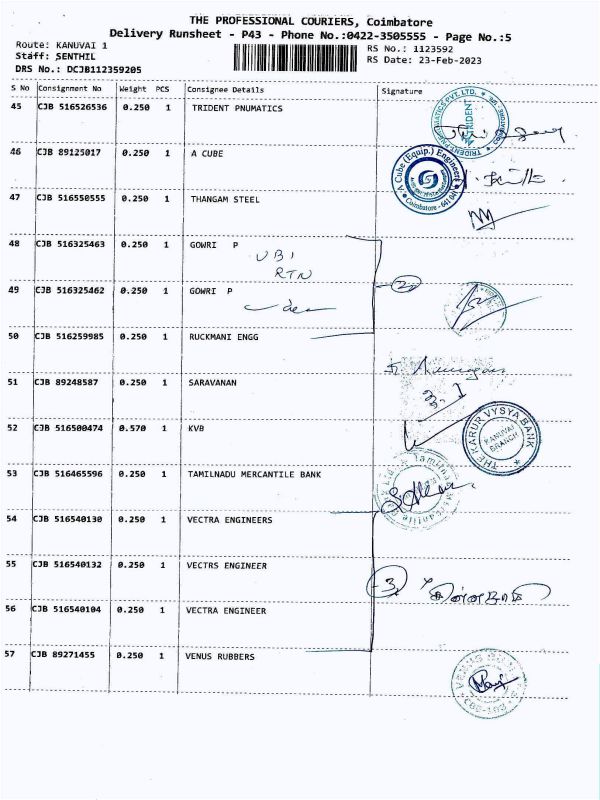 THE PROFESSIONAL COURIERS, Coimbatore
Delivery Runsheet - P43 - Phone No.:0422-3505555 - Page No.:5
Route: KANUVAI 1
RS No.: 1123592
Staff: SENTHIL
RS Date: 23-Feb-2023
DRS No.: DCJB112359205
S No Consignment No Weight PCS Consignee Details Signature
45 CJB 516526536 0.250 1 TRIDENT PNUMATICS
46 CJB 89125017 0.250 1 A CUBE
A Cube (Equip.) Engineers
Coimbatore - 641 041
47 CJB 516550555 0.250 1 THANGAM STEEL
48 CJB 516325463 0.250 1 GOWRI P
UBI
RTN
2
49 CJB 516325462 0.250 1 GOWRI P
50 CJB 516259985 0.250 1 RUCKMANI ENGG
51 CJB 89248587 0.250 1 SARAVANAN
52 CJB 516500474 0.570 1 KVB
THE KARUR VYSYA BANK
KANUVAI
BRANCH
53 CJB 516465596 0.250 1 TAMILNADU MERCANTILE BANK
54 CJB 516540130 0.250 1 VECTRA ENGINEERS
55 CJB 516540132 0.250 1 VECTRS ENGINEER
3
56 CJB 516540104 0.250 1 VECTRA ENGINEER
57 CJB 89271455 0.250 1 VENUS RUBBERS